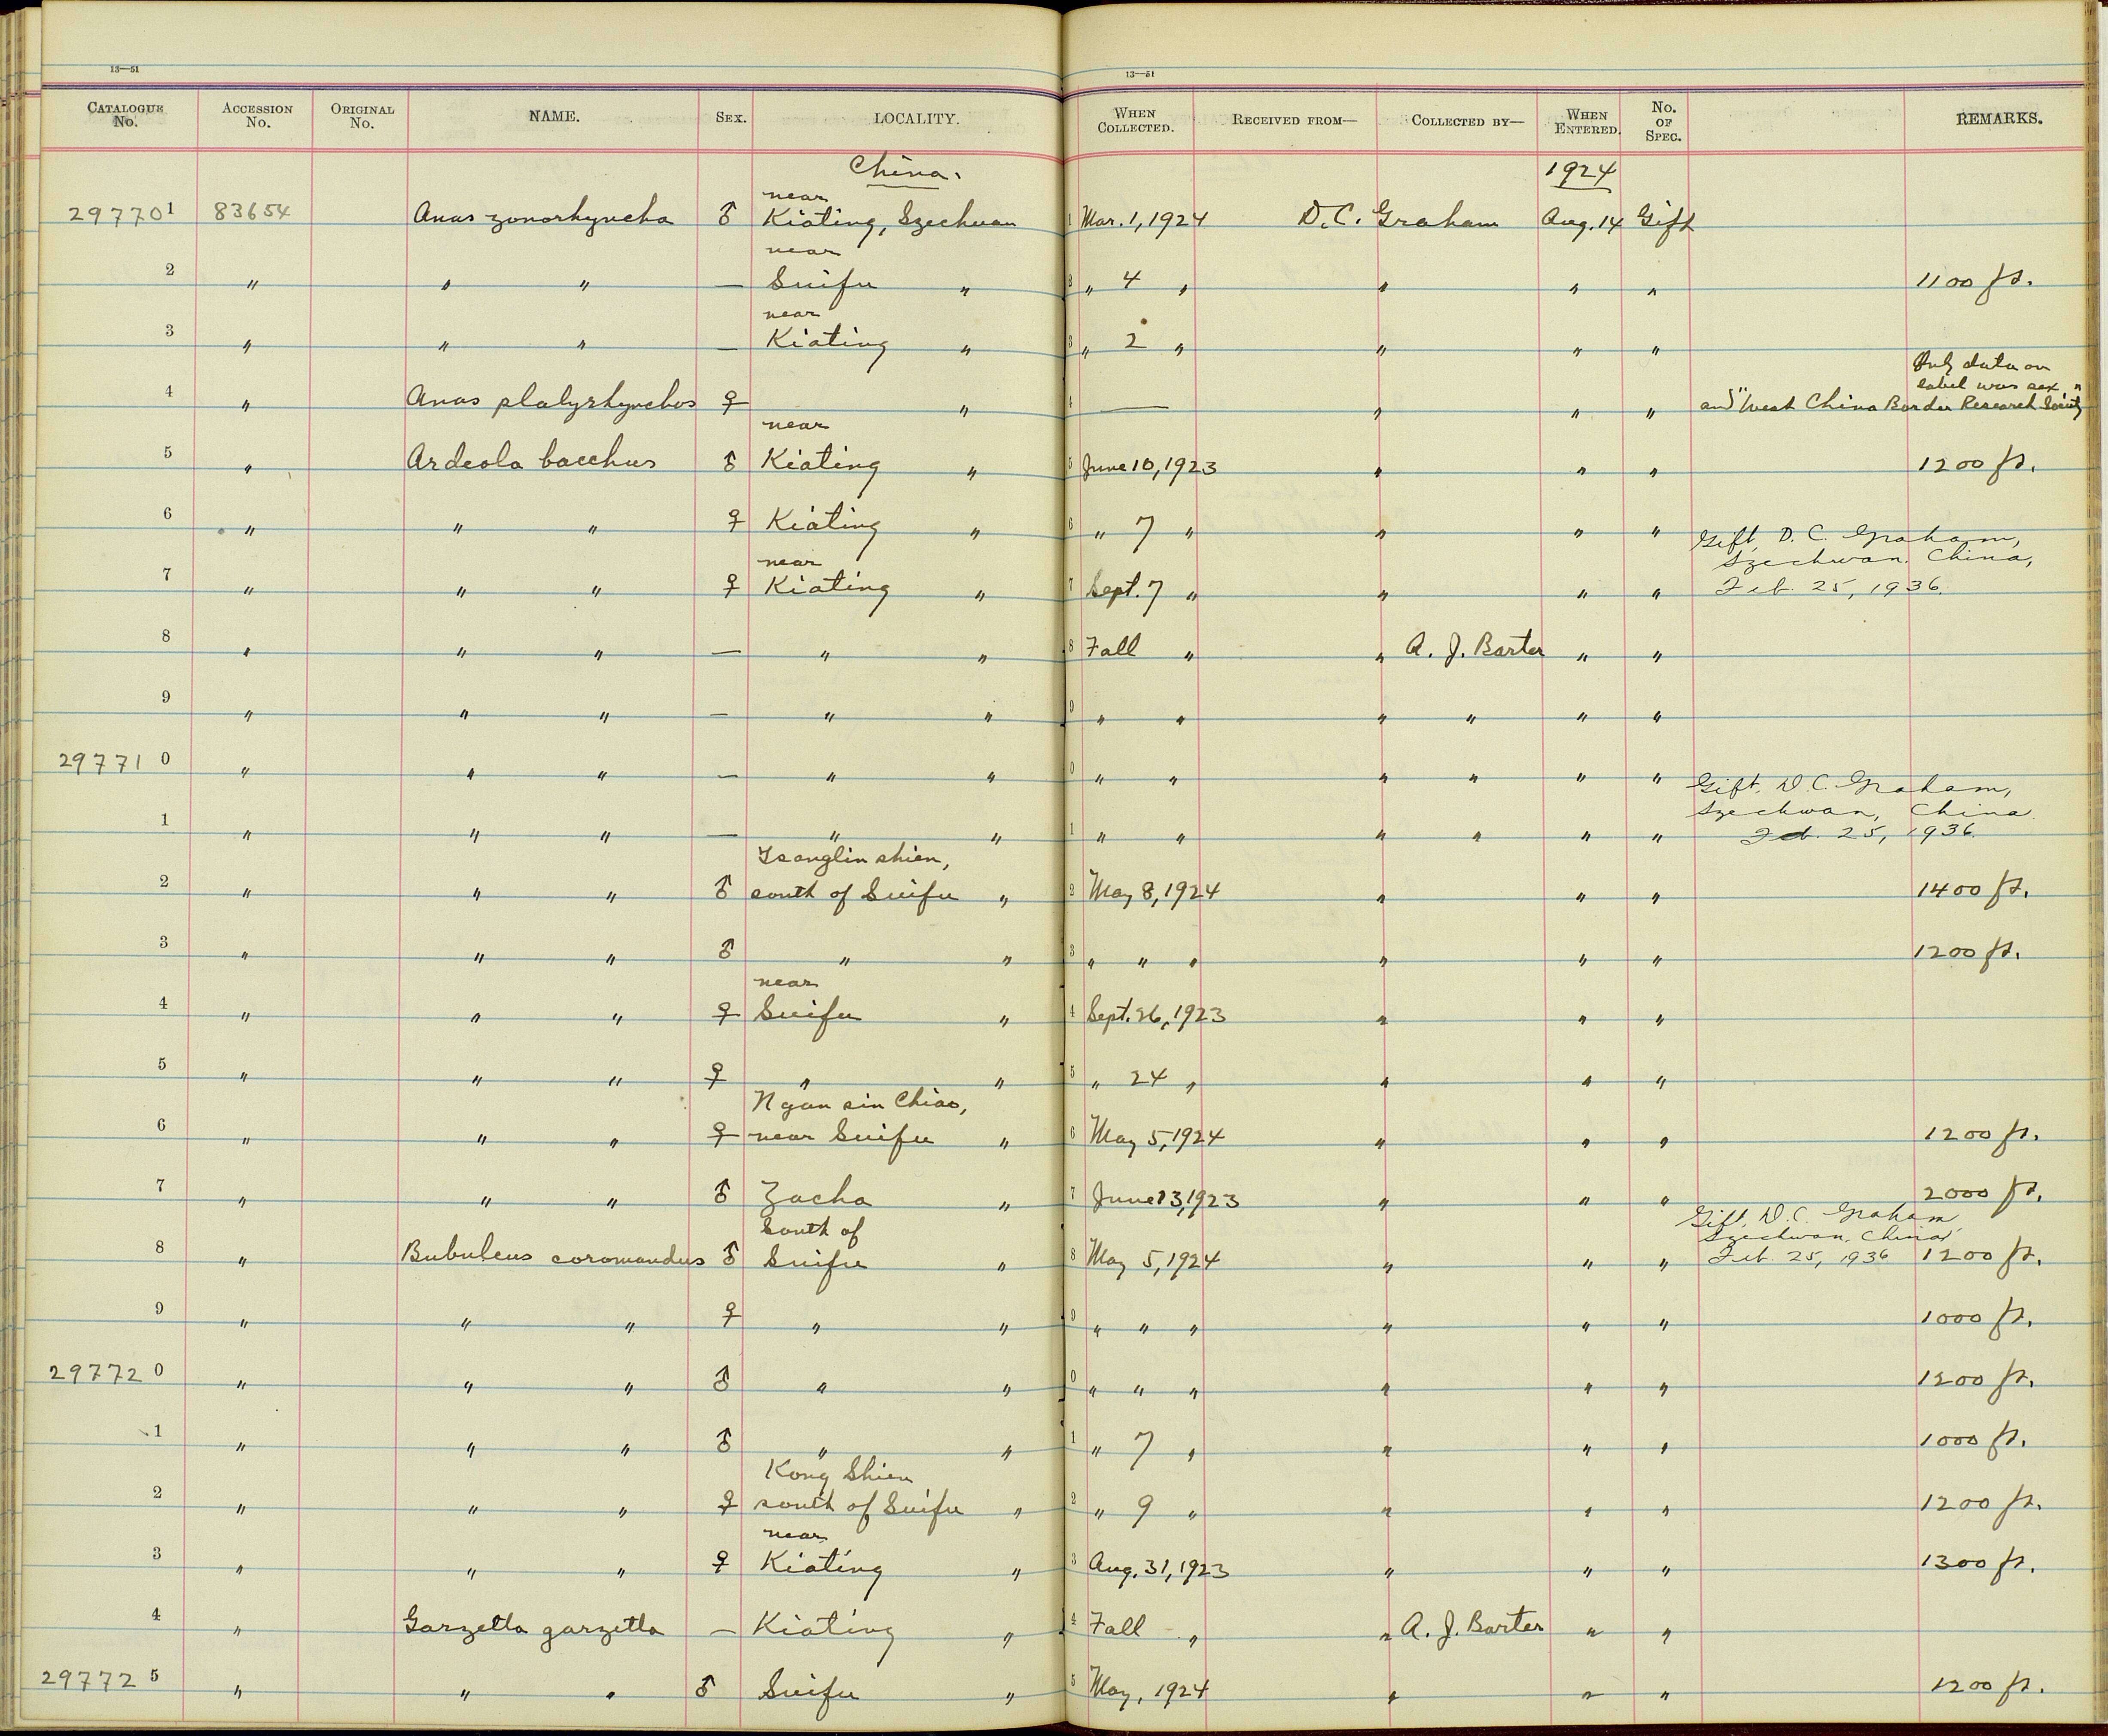 13—51 13—51
CATALOGUE No. ACCESSION No. ORIGINAL No. NAME. SEX. LOCALITY. WHEN COLLECTED. RECEIVED FROM— COLLECTED BY— WHEN ENTERED. No. OF SPEC. REMARKS.
China. 1924
near
297701 83654 Anas zonorhyncha ♂ Kiating, Szechuan 1 Mar. 1, 1924 D. C. Graham Aug. 14 Gift
near
2 " " " — Suifu " 2 " 4 " " " " 1100 ft.
near
3 " " " — Kiating " 3 " 2 " " " "
Only data on
label was sex
4 " Anas platyrhynchos ♀ " 4 — " " " and "West China Border Research Society"
near
5 " Ardeola bacchus ♂ Kiating " 5 June 10, 1923 " " " 1200 ft.
6 " " " ♀ Kiating " 6 " 7 " " " " Gift, D. C. Graham,
near Szechwan, China,
7 " " " ♀ Kiating " 7 Sept. 7 " " " " Feb. 25, 1936.
8 " " " — " " 8 Fall " " A. J. Barter " "
9 " " " — " " 9 " " " " " "
297710 " " " — " " 0 " " " " " " Gift, D. C. Graham,
Szechwan, China.
1 " " " — " " 1 " " " " " " Feb. 25, 1936.
Tsanglin shien,
2 " " " ♂ south of Suifu " 2 May 8, 1924 " " " 1400 ft.
3 " " " ♂ " " 3 " " " " " " 1200 ft.
near
4 " " " ♀ Suifu " 4 Sept. 26, 1923 " " "
5 " " " ♀ " " 5 " 24 " " " "
Ngan sin Chiao,
6 " " " ♀ near Suifu " 6 May 5, 1924 " " " 1200 ft.
7 " " " ♂ Zacha " 7 June 13, 1923 " " " 2000 ft.
Gift, D. C. Graham,
South of Szechwan, China,
8 " Bubulcus coromandus ♂ Suifu " 8 May 5, 1924 " " " Feb. 25, 1936 1200 ft.
9 " " " ♀ " " 9 " " " " " " 1000 ft.
297720 " " " ♂ " " 0 " " " " " " 1200 ft.
1 " " " ♂ " " 1 " 7 " " " " 1000 ft.
Kong Shien
2 " " " ♀ south of Suifu " 2 " 9 " " " " 1200 ft.
near
3 " " " ♀ Kiating " 3 Aug. 31, 1923 " " " 1300 ft.
4 " Garzetta garzetta — Kiating " 4 Fall " " A. J. Barter " "
297725 " " " ♂ Suifu " 5 May, 1924 " " " 1200 ft.